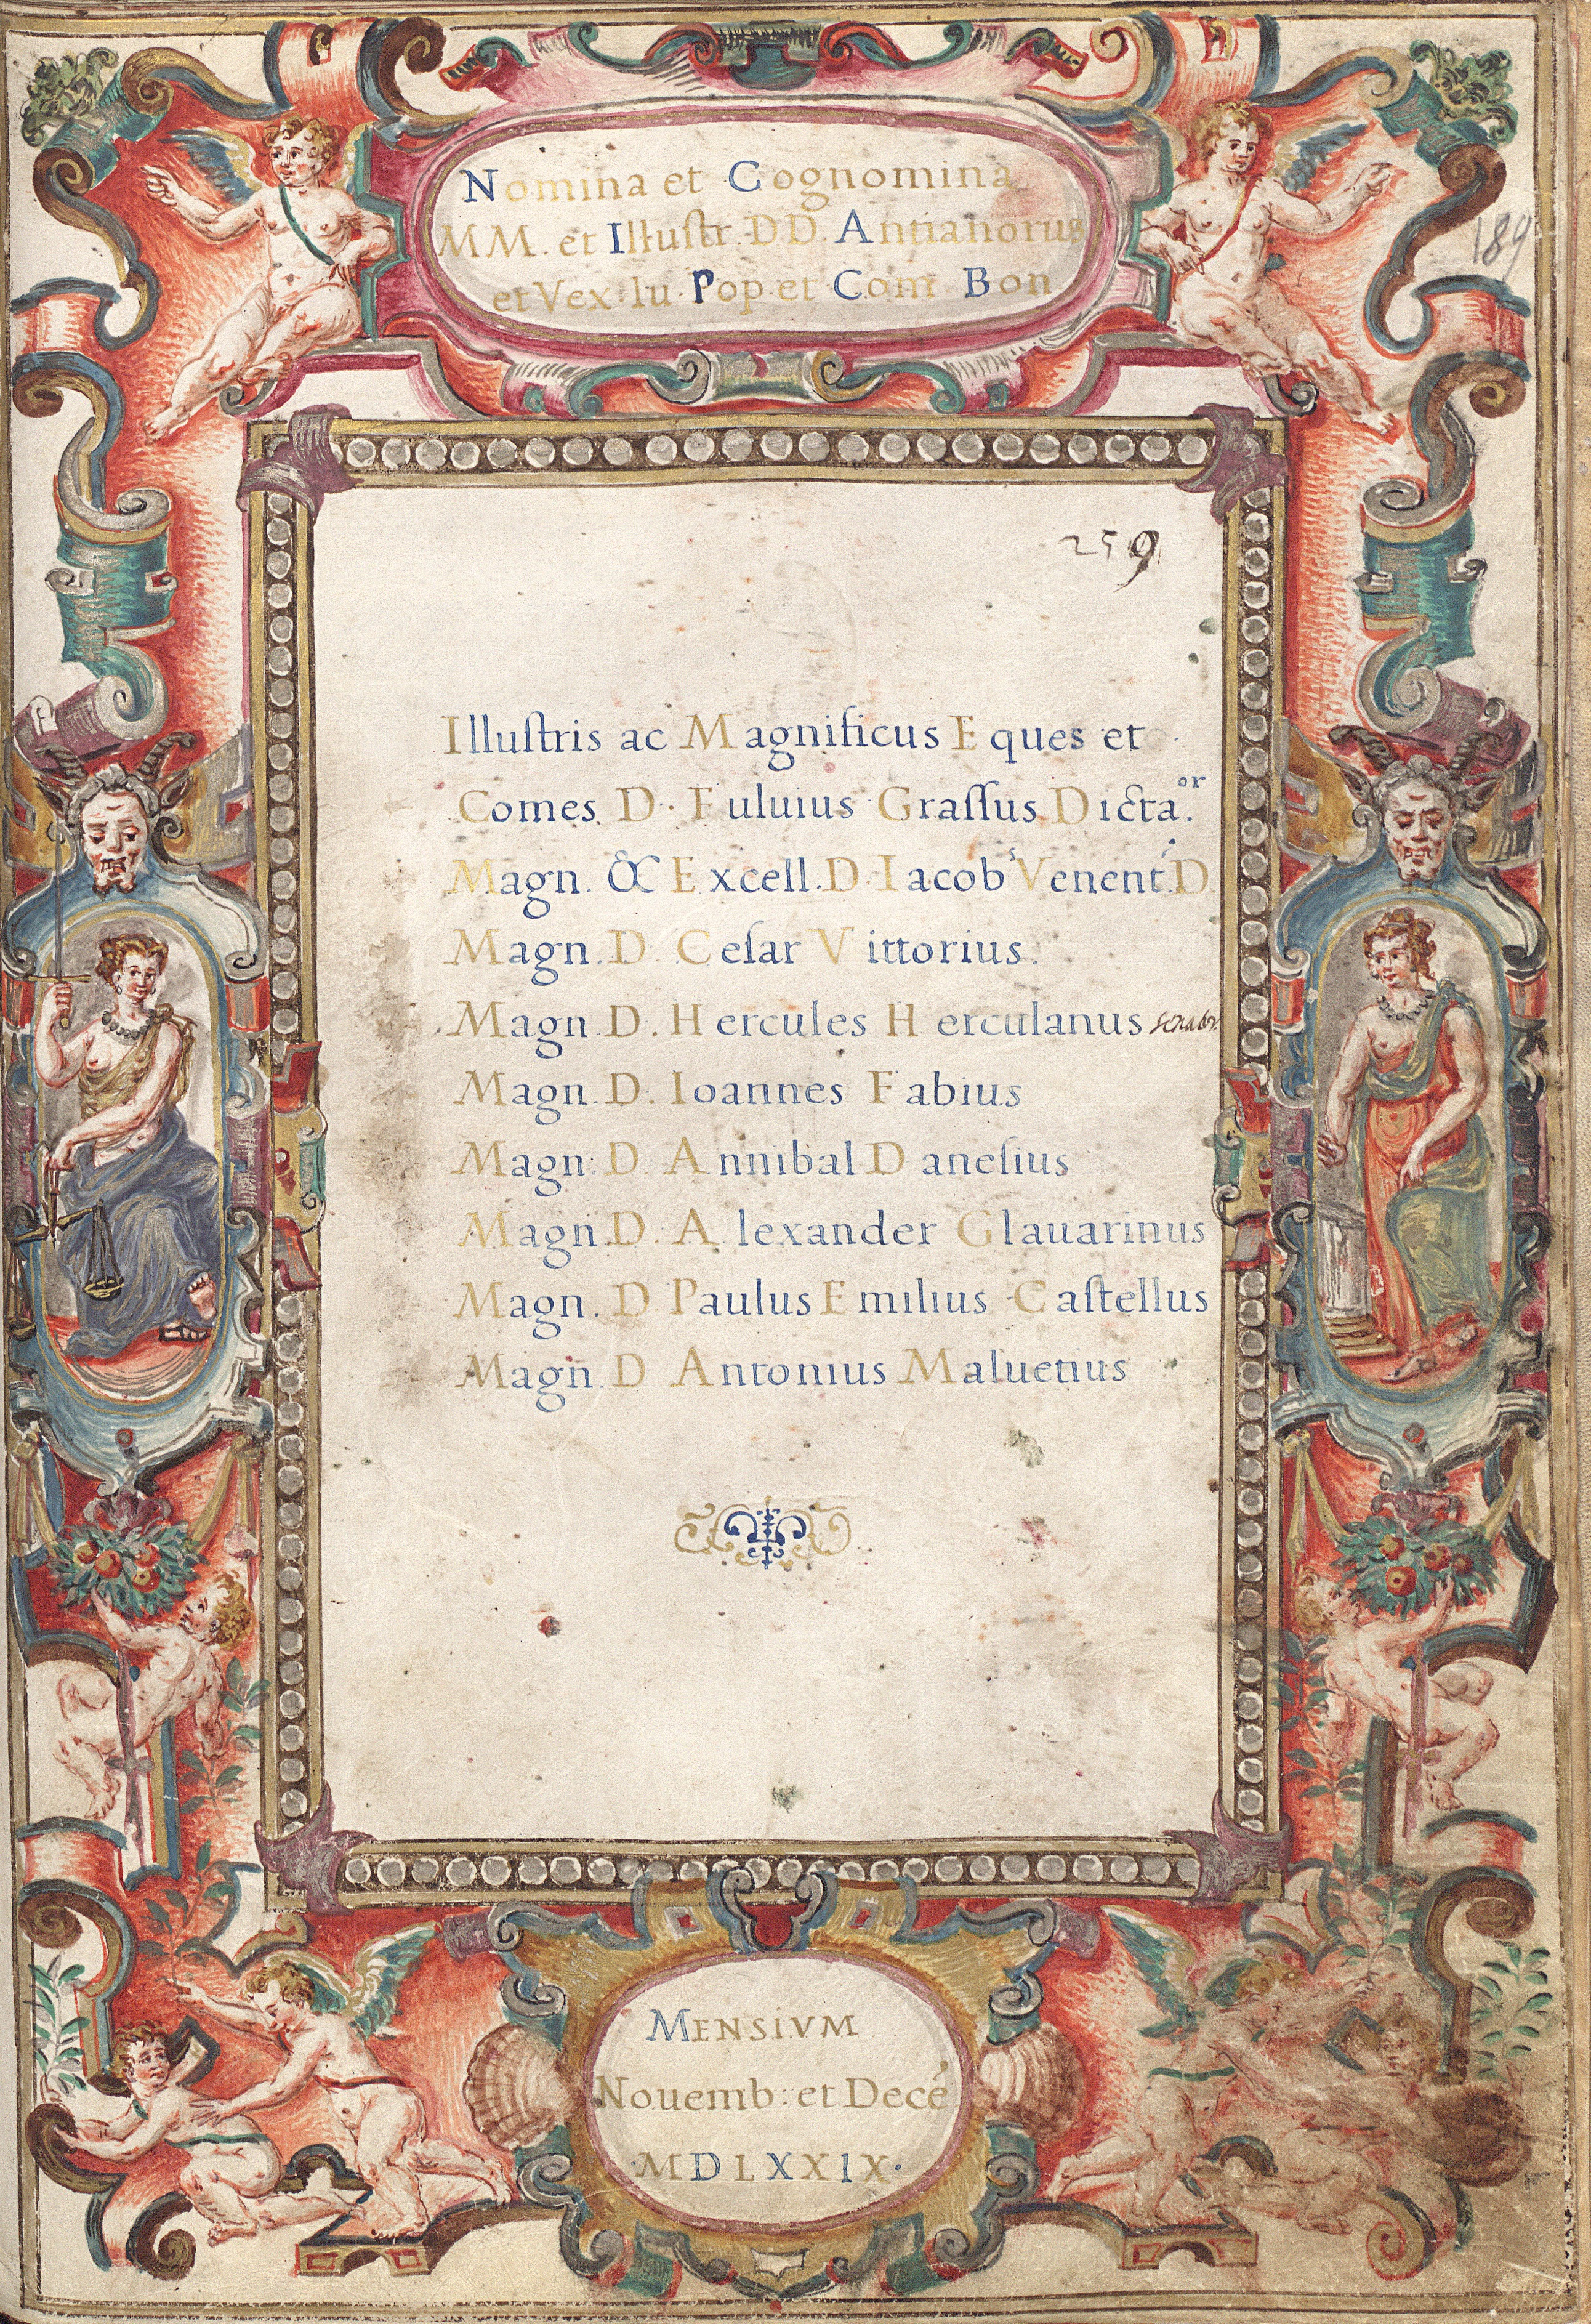 Nomina et Cognomina
MM. et Illuſtr. DD. Antianorus
et Vex. Iu. Pop et Com Bon
189
259
Illuſtris ac Magnificus Eques et
Comes D. Fuluius Graſſus Dictaᵒʳ.
Magn. & Excell. D. Iacobˢ Venent.ˢ D
Magn. D. Ceſar Vittorius.
Magn. D. Hercules Herculanus senator.
Magn. D. Ioannes Fabius
Magn. D. Annibal Daneſius
Magn. D. Alexander Glauarinus
Magn. D Paulus Emilius Caſtellus
Magn. D Antonius Maluetius
MENSIVM
Nouemb: et Decé
MDLXXIX.